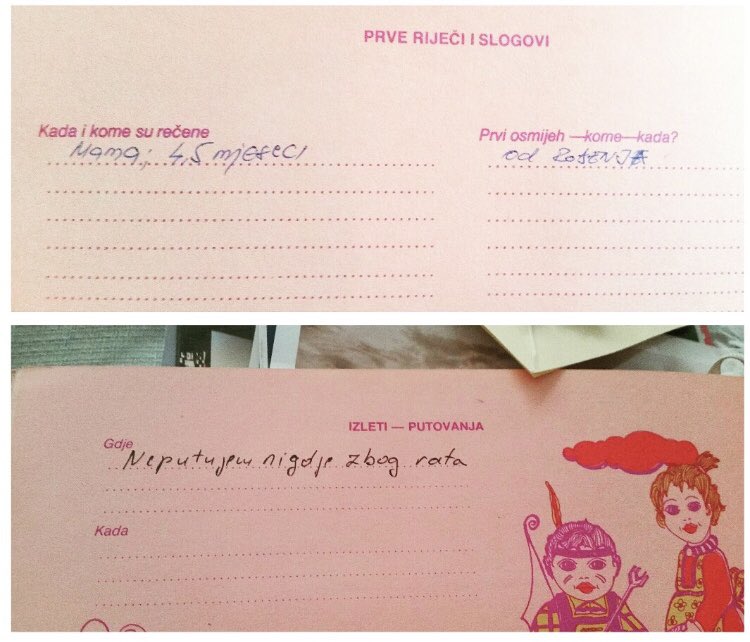 PRVE RIJEČI I SLOGOVI
Kada i kome su rečene
Mama; 4,5 mjeseci
Prvi osmijeh —kome—kada?
od ROĐENJA
IZLETI — PUTOVANJA
Gdje
Neputujem nigdje zbog rata
Kada